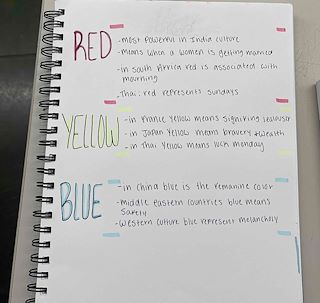 RED
-most Powerful in India culture
-means when a women is getting married
-in south Africa red is associated with
mourning
-Thai: red represents sundays
YELLOW
-in France Yellow means signifing jealousy
-in Japan Yellow means bravery & wealth
-in Thai Yellow means luck monday
BLUE
-in China blue is the remanine color
-middle eastern countries blue means
Safety
-Western culture blue represent melancholy